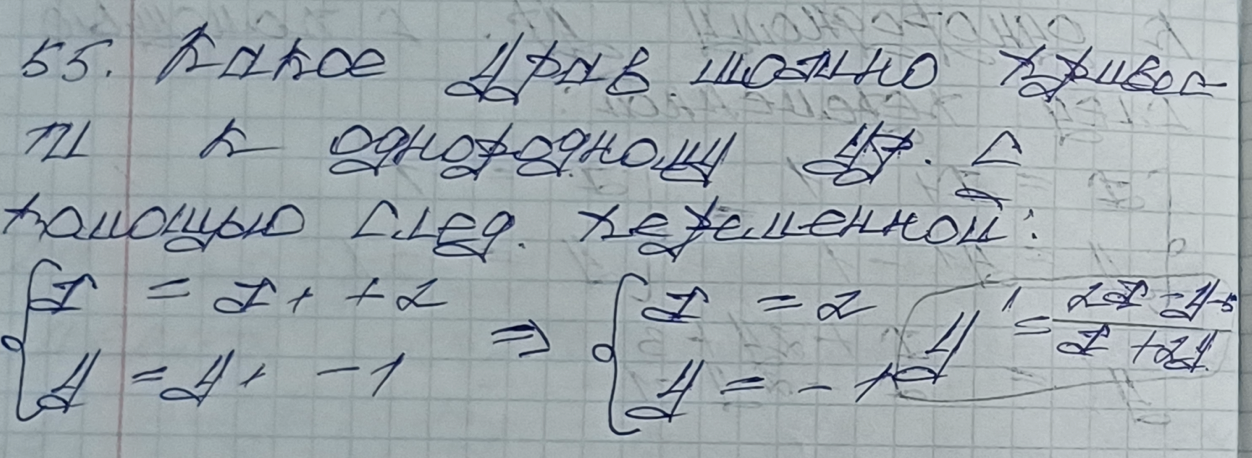 55. Какое урав можно привес
ти к однородному ур. с
помощью след. переменной:
{ x = x₁ + 2 ⇒ { x = 2 y' = (2x - y - 5)/(x + 2y)
{ y = y₁ - 1 { y = -1